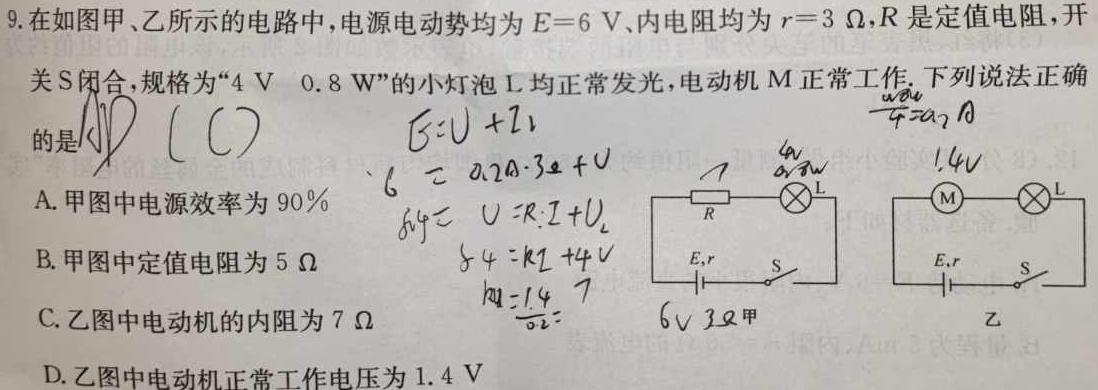 9.在如图甲、乙所示的电路中,电源电动势均为 E=6 V、内电阻均为 r=3 Ω,R 是定值电阻,开
关S闭合,规格为“4 V 0.8 W”的小灯泡 L 均正常发光,电动机 M 正常工作. 下列说法正确
的是
(C)
E=U+Ir
6 = 0.2A·3Ω+U
U=R·I+U
4=RI+4V
=1.4
0.2
7
=0.2A
A. 甲图中电源效率为 90%
B. 甲图中定值电阻为 5 Ω
C. 乙图中电动机的内阻为 7 Ω
D. 乙图中电动机正常工作电压为 1.4 V
4V
L
R
E,r
S
6V 3Ω 甲
1.4V
M
L
E,r
S
乙